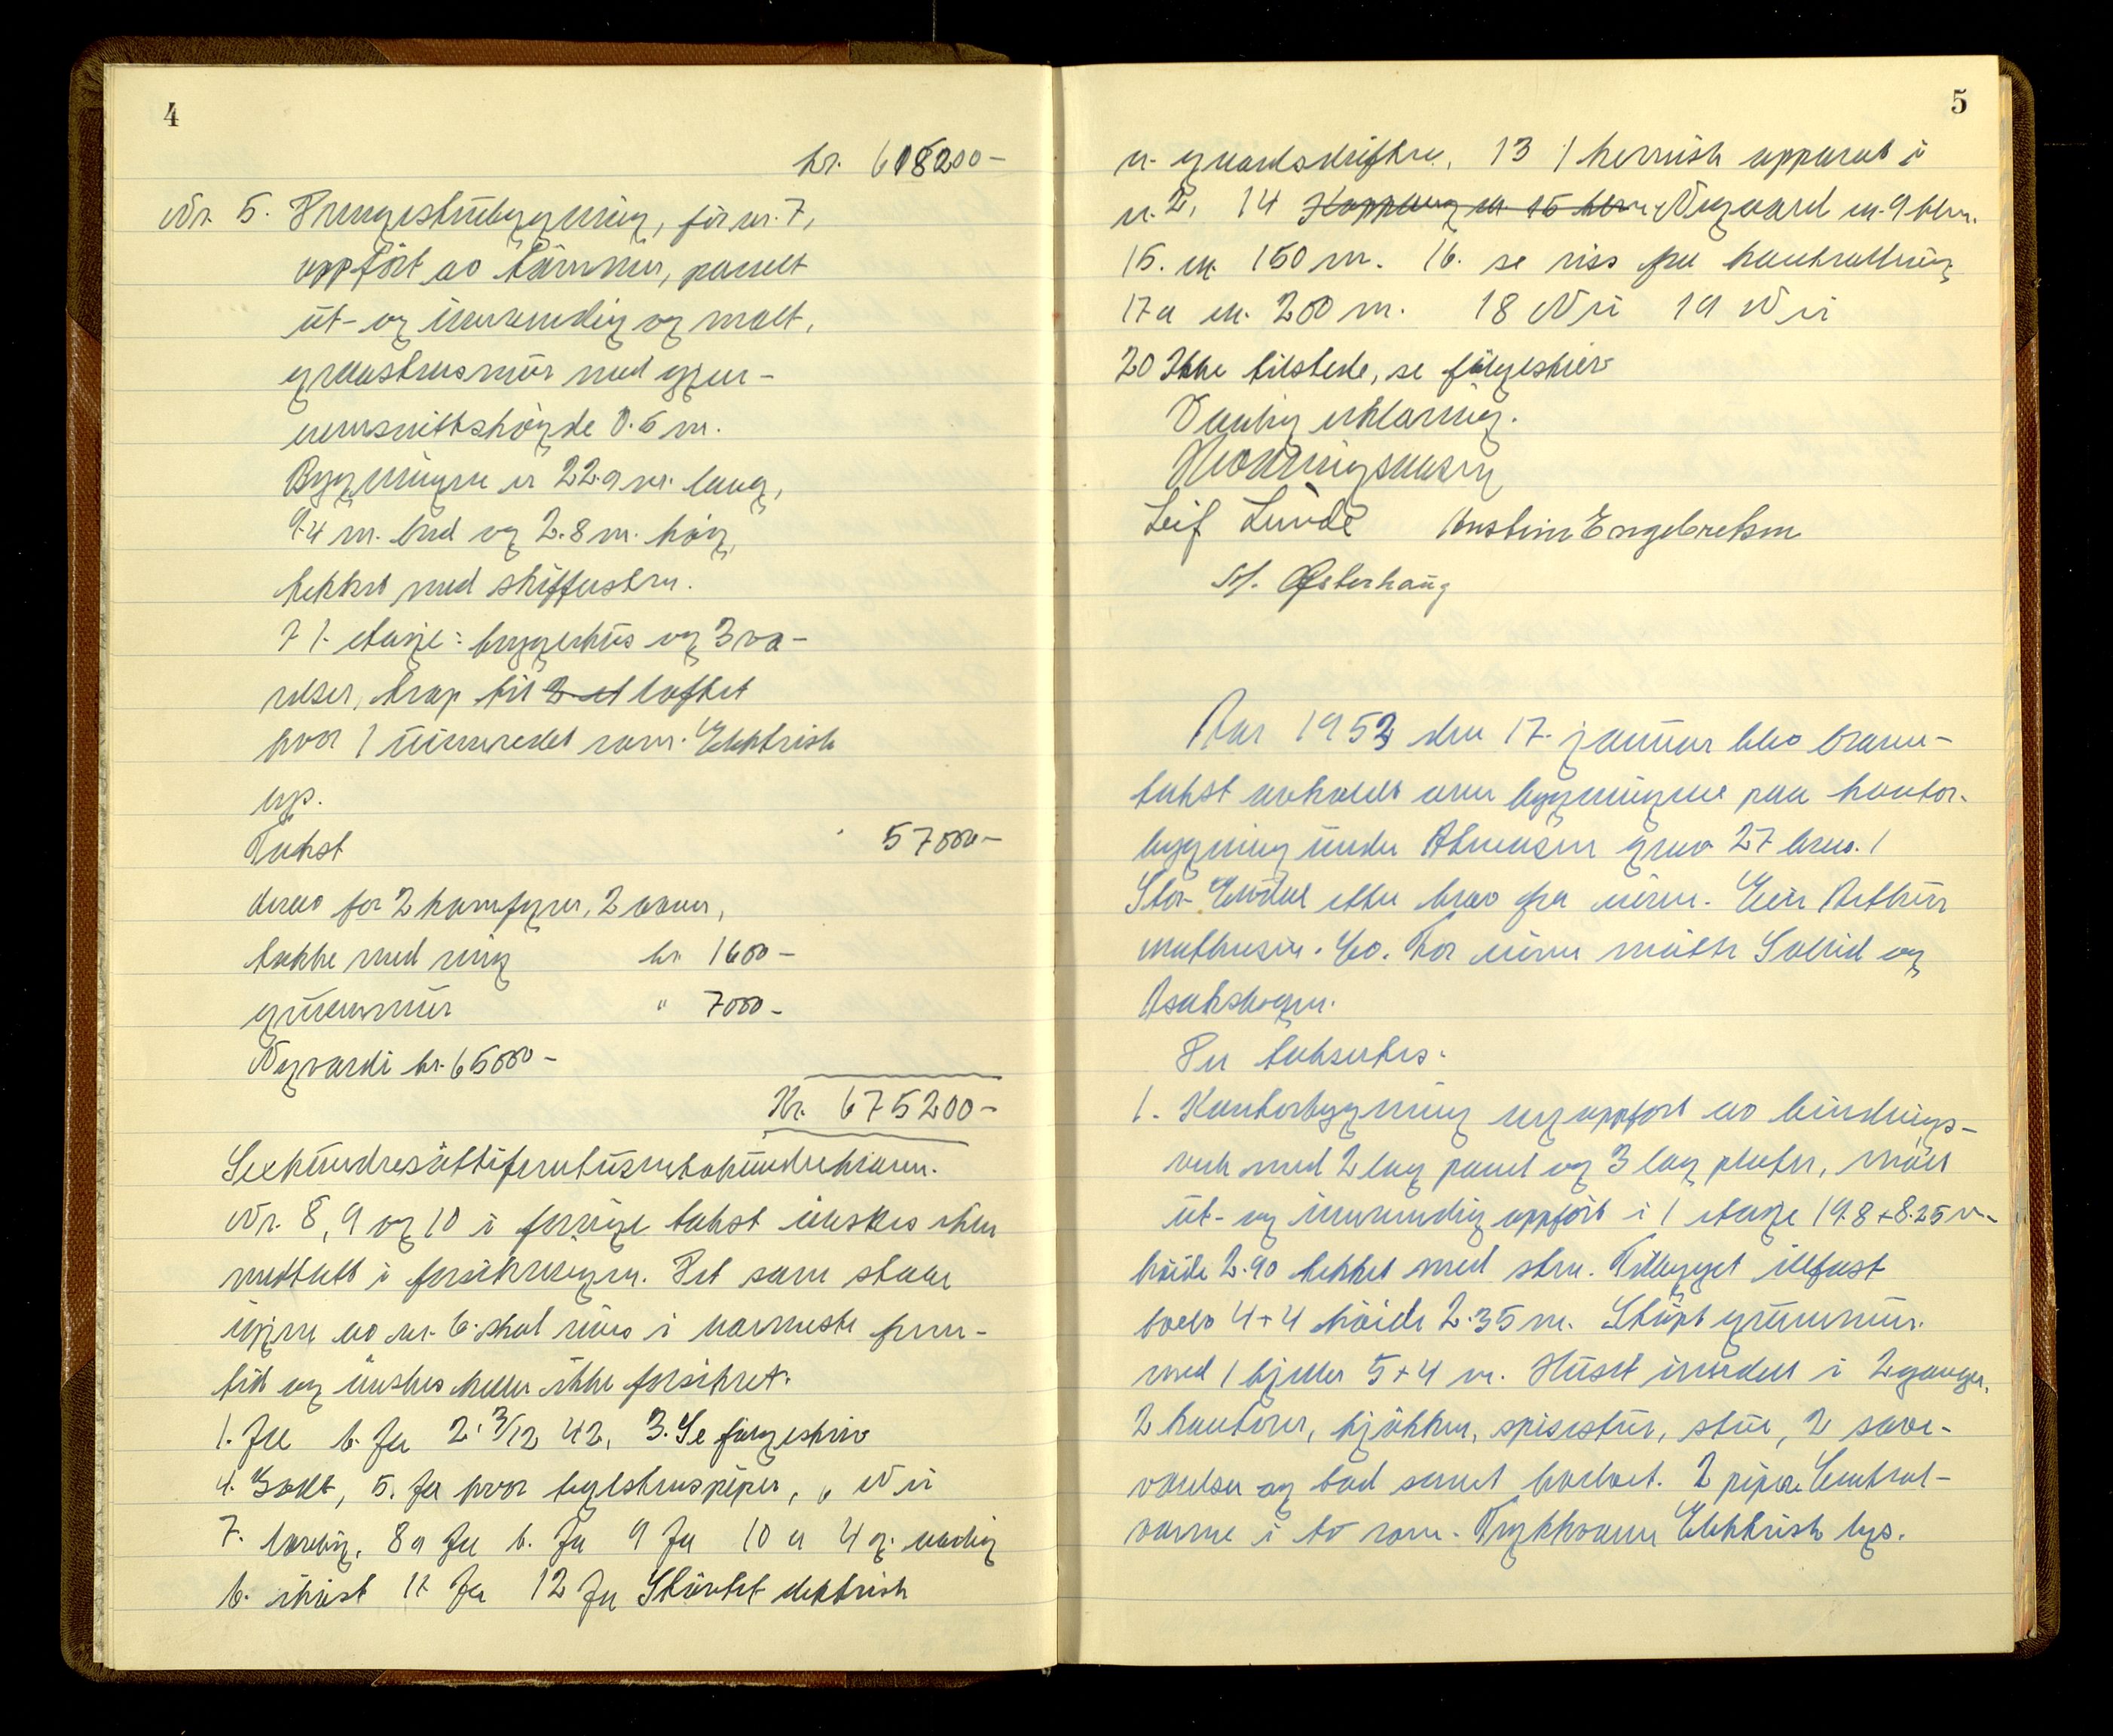 4
kr. 618200-
Nr. 5. Drengestubygning, før nr. 7,
oppført av tømmer, panelt
ut- og innvendig og malt,
graastensmur med gjen-
nemsnittshøyde 0.5 m.
Bygningen er 22.9 m. lang,
9.4 m. bred og 2.8 m. høy,
tekket med skifersten.
I 1. etasje: bryggerhus og 3 væ-
relser, trap til 2 et loftet
hvor 1 uinnredet rom. Elektrisk
lys.
Takst 57000-
derav for 2 komfyrer, 2 ovner,
takke med ring kr. 1600-
grunnmur " 7000-
Nyverdi kr. 65000-
Kr. 675200-
Sekshundresøttifemtusentohundrekroner.
Nr. 8, 9 og 10 i forrige takst ønskes ikke
medtatt i forsikringen. Det som staar
igjen av nr. 6 skal rives i nærmeste frem-
tid og ønskes heller ikke forsikret.
1. Ja b. Ja 2. 3/12 42, 3. Se følgeskriv
4. Godt, 5. Ja hvor teglstenspiper, 6 Nei
7. Lovlig, 8 a Ja b. Ja 9 Ja 10 a 4 g. aarlig
b. ukvist 11 Ja 12 Ja Støvtet elektrisk
5
a. gaardsdriften, 13 1 kemisk apparat i
n. 2, 14 Koppang ca. 15 klm. Nygaard ca. 9 klm.
15. ca. 150 m. 16. se riss fra
17a ca. 200 m. 18 Nei 19 Nei
20 Ikke tilstede, se følgeskriv
Vanlig erklæring.
Hevningsansøg
Leif Lunde Anstein Engebretsen
M. Østerhaug
Aar 1953 den 17. januar blev brann-
takst avholdt over bygningene paa kontor-
bygning under Atneosen grnr 27 brnr. 1
Stor-Elvdal etter krav fra eieren. Eier Arthur
Mathiesen. Co. For eieren møtte Sollid og
Asakskogen.
Der takseres.
1. Kontorbygning nyoppført av bindings-
verk med 2 lag panel og 3 lag plater, malt
ut- og innvendig oppført i 1 etasje 19.8 + 8.25 m-
høide 2.90 tekket med sten. Tilbygget ildfast
hvelv 4 + 4 høide 2.35 m. Støpt grunnmur.
med 1 kjeller 5 + 4 m. Huset inndelt i 2 ganger,
2 kontorer, kjøkken, spisestue, stue, 2 sove-
værelser og bad samt hvelvet. 2 piper. Central-
varme i to rom. Trykkvann Elektrisk lys.